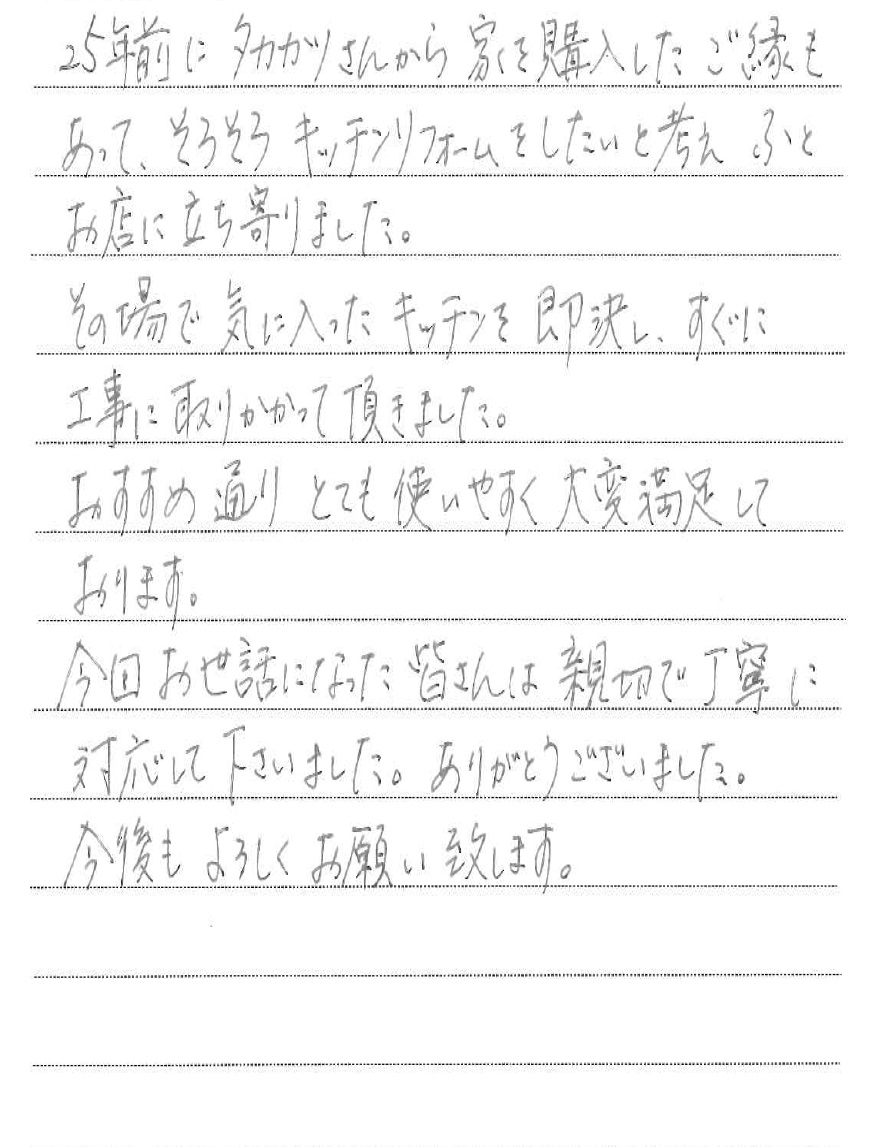 25年前に タカカツさんから 家を購入した ご縁も
あって、そろそろ キッチンリフォームをしたいと考え ふと
お店に立ち寄りました。
その場で 気に入った キッチンを 即決し、すぐに
工事に取りかかって頂きました。
おすすめ通り とても 使いやすく 大変満足して
おります。
今回お世話になった 皆さんは 親切で丁寧に
対応して下さいました。ありがとうございました。
今後も よろしく お願い致します。